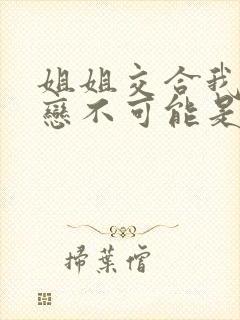 姐姐交合我
戀不可能是
掃葉僧